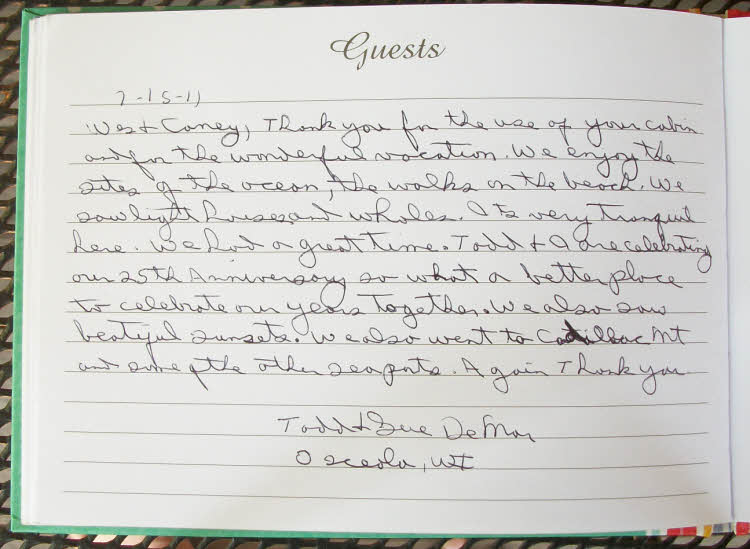 Guests
7-15-11
West Caney, Thank you for the use of your cabin
and for the wonderful vacation. We enjoy the
sites of the ocean, the walks on the beach. We
saw light houses and whales. Its very tranquil
here. We had a great time. Todd & I are celebrating
our 25th Anniversary so what a better place
to celebrate our years together. We also saw
beatiful sunsets. We also went to Cadillac Mt
and some of the other seaports. Again Thank you
Todd & Sue DeMar
Osceola, WI